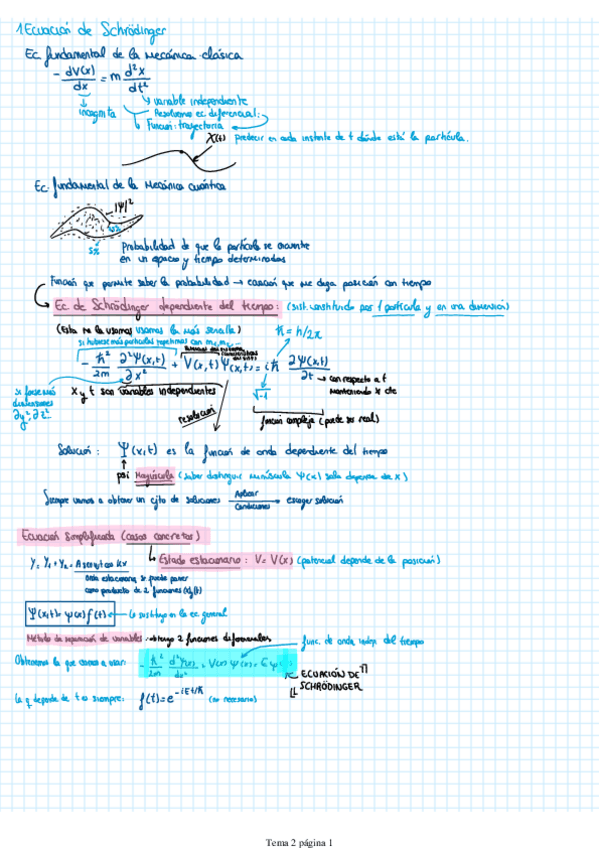 1. Ecuación de Schrödinger
Ec. fundamental de la Mecánica clásica
- dV(x)/dx = m d²x/dt²
incógnita
variable independiente
Resolvemos ec. diferencial:
Función: trayectoria
X(t) predecir en cada instante de t dónde está la partícula.
Ec. fundamental de la Mecánica cuántica
|Ψ|²
5%
Probabilidad de que la partícula se encuentre
en un espacio y tiempo determinados
Función que permite saber la probabilidad → ecuación que me diga posición con tiempo
Ec. de Schrödinger dependiente del tiempo: (sist. constituido por 1 partícula y en una dimensión)
(Esta no la usamos usamos la más sencilla)
ħ = h/2π
si hubiese más partículas repetimos con m₁, m₂...
- ħ²/2m ∂²Ψ(x,t)/∂x² + V(x,t) Ψ(x,t) = i ħ ∂Ψ(x,t)/∂t
→ con respecto a t
manteniendo x cte
√-1
Si fuese más
dimensiones
∂y², ∂z²
x y t son variables independientes
resolución
función compleja (puede ser real)
Solución: Ψ(x,t) es la función de onda dependiente del tiempo
psi Mayúscula (saber distinguir minúscula ψ(x) solo depende de x)
Siempre vamos a obtener un cjto de soluciones Aplicar condiciones → escoger solución
Ecuación simplificada (casos concretos)
Estado estacionario: V = V(x) (potencial depende de la posición)
y = y₁ + y₂ = A sen ωt cos kx
onda estacionaria se puede poner
como producto de 2 funciones
Ψ(x,t) = ψ(x) f(t) ← lo sustituyo en la ec. general
Método de separación de variables: obtengo 2 funciones diferenciales
func. de onda indep. del tiempo
Obtenemos la que vamos a usar: - ħ²/2m d²ψ(x)/dx² + V(x) ψ(x) = E ψ(x)
ECUACIÓN DE
SCHRÖDINGER
La q depende de t es siempre: f(t) = e^(-iEt/ħ) (no necesaria)
Tema 2 página 1